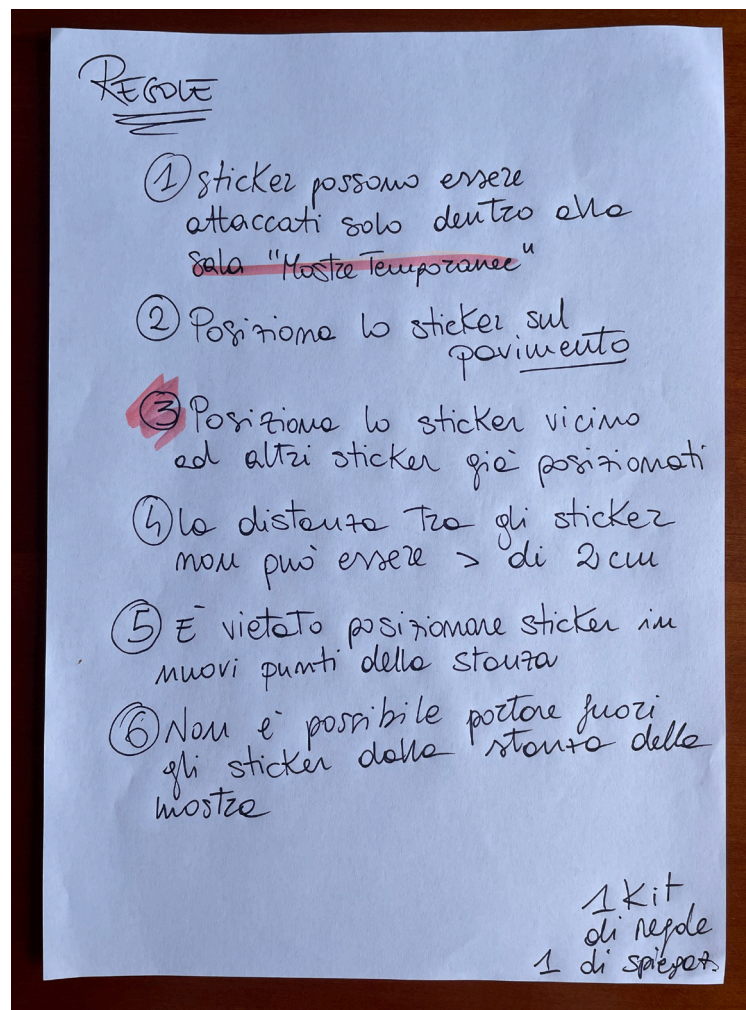 REGOLE
① sticker possono essere
attaccati solo dentro alla
sala "Mostre Temporanee"
② Posiziona lo sticker sul
pavimento
③ Posiziona lo sticker vicino
ad altri sticker già posizionati
④ la distanza tra gli sticker
non può essere > di 2 cm
⑤ E' vietato posizionare sticker in
nuovi punti della stanza
⑥ Non è possibile portare fuori
gli sticker dalla stanza della
mostra
1 Kit
di regole
1 di spiegaz.